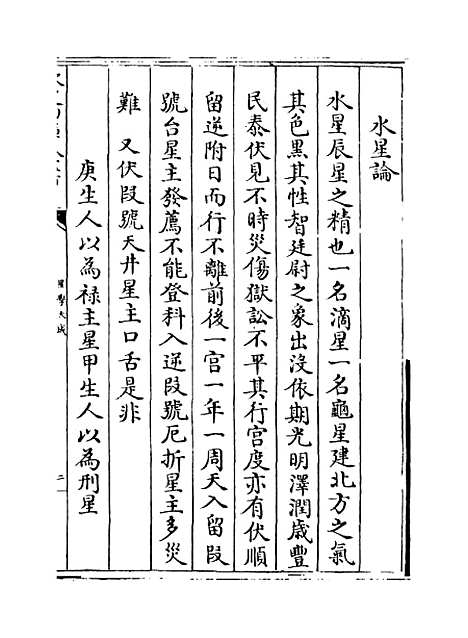 水星論
水星辰星之精也一名滴星一名龜星建北方之氣
其色黑其性智廷尉之象出没依期光明澤潤歲豐
民泰伏見不時災傷獄訟不平其行宫度亦有伏順
留逆附日而行不離前後一宫一年一周天入留段
號台星主發薦不能登科入逆段號厄折星主多災
難 又伏段號天井星主口舌是非
庚生人以為禄主星甲生人以為刑星
星學大成